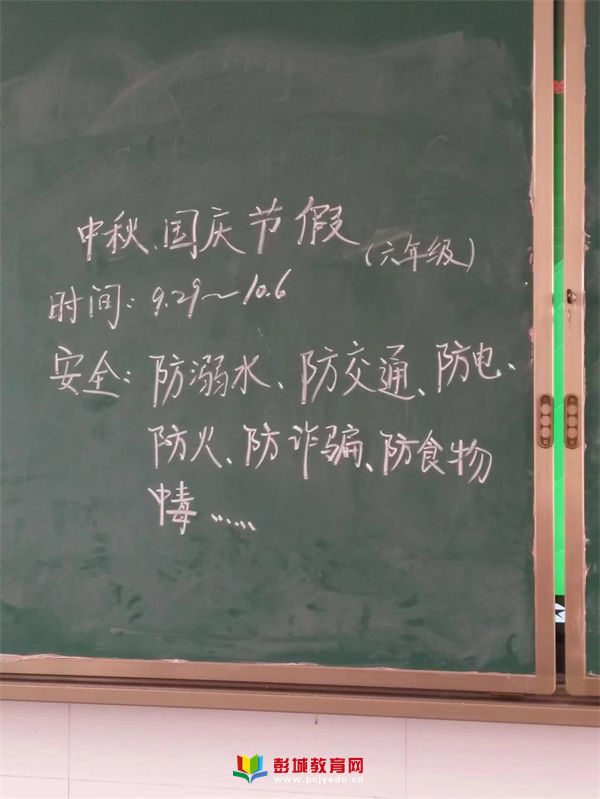 中秋、国庆节假
(六年级)
时间：9.29～10.6
安全：防溺水、防交通、防电、
防火、防诈骗、防食物
中毒……
彭城教育网
www.pcjyedu.cn